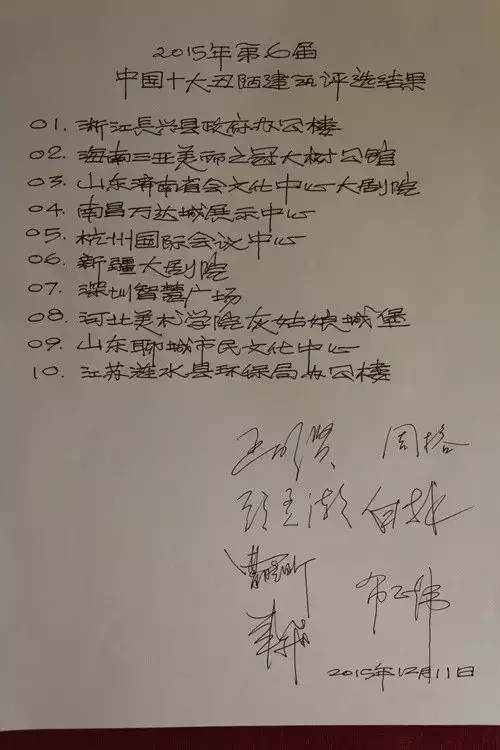 2015年第6届
中国十大丑陋建筑评选结果
01. 浙江長兴县政府办公楼
02. 海南三亚美丽之冠大树公馆
03. 山东济南省会文化中心大剧院
04. 南昌万达城展示中心
05. 杭州国际会议中心
06. 新疆大剧院
07. 深圳智慧广场
08. 河北美术学院灰姑娘城堡
09. 山东聊城市民文化中心
10. 江苏涟水县环保局办公楼
王明贤 周榕
顾孟潮
布正伟
2015年12月11日